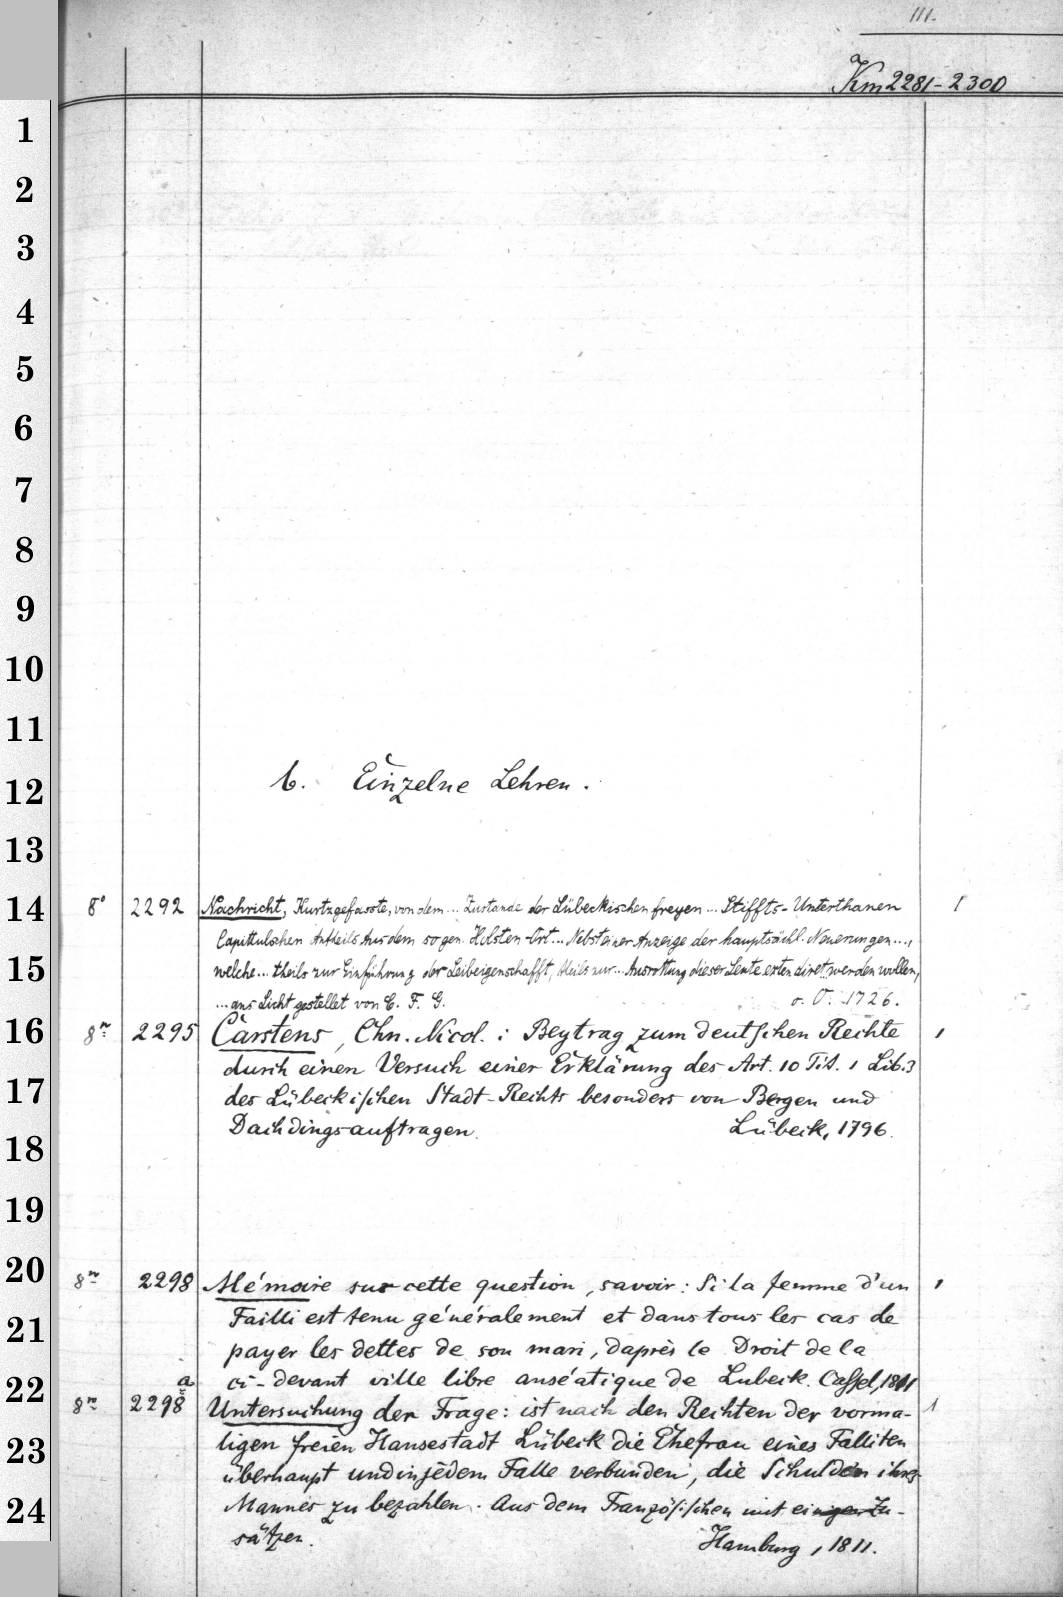 111.
Km 2281-2300
1
2
3
4
5
6
7
8
9
10
11
b. Einzelne Lehren.
12
13
14
8° 2292 Nachricht, Kurtzgefasste, von dem ... Zustande der Lübeckischen freyen ... Stiffts-Unterthanen 1
Capittulschen Antheils Aus dem sogen. Holsten-Ort ... Nebst einer Anzeige der hauptsächl. Neuerungen ...,
15
welche ... theils zur Einführung der Leibeigenschafft, theils zur ... Ausrottung dieser Leute extendiret werden wollen,
... ans Licht gestellet von C. F. G. o. O. 1726.
16
8m 2295 Carstens, Chn. Nicol.: Beytrag zum deutschen Rechte 1
durch einen Versuch einer Erklärung des Art. 10 Tit. 1 Lib. 3
17
des Lübeckischen Stadt-Rechts besonders von Bergen und
Dachdingsauftragen. Lübeck, 1796.
18
19
20
8m 2298 Mémoire sur cette question, savoir: Si la femme d'un 1
21
Failli est tenu généralement et dans tous les cas de
payer les dettes de son mari, daprès le Droit de la
22
ci-devant ville libre anséatique de Lubeck. Cassel, 1811
8m 2298a Untersuchung der Frage: ist nach den Rechten der vorma- 1
23
ligen freien Hansestadt Lübeck die Ehefrau eines Falliten
überhaupt und in jedem Falle verbunden, die Schulden ihres
24
Mannes zu bezahlen. Aus dem Französischen mit einigen Zu-
sätzen. Hamburg, 1811.